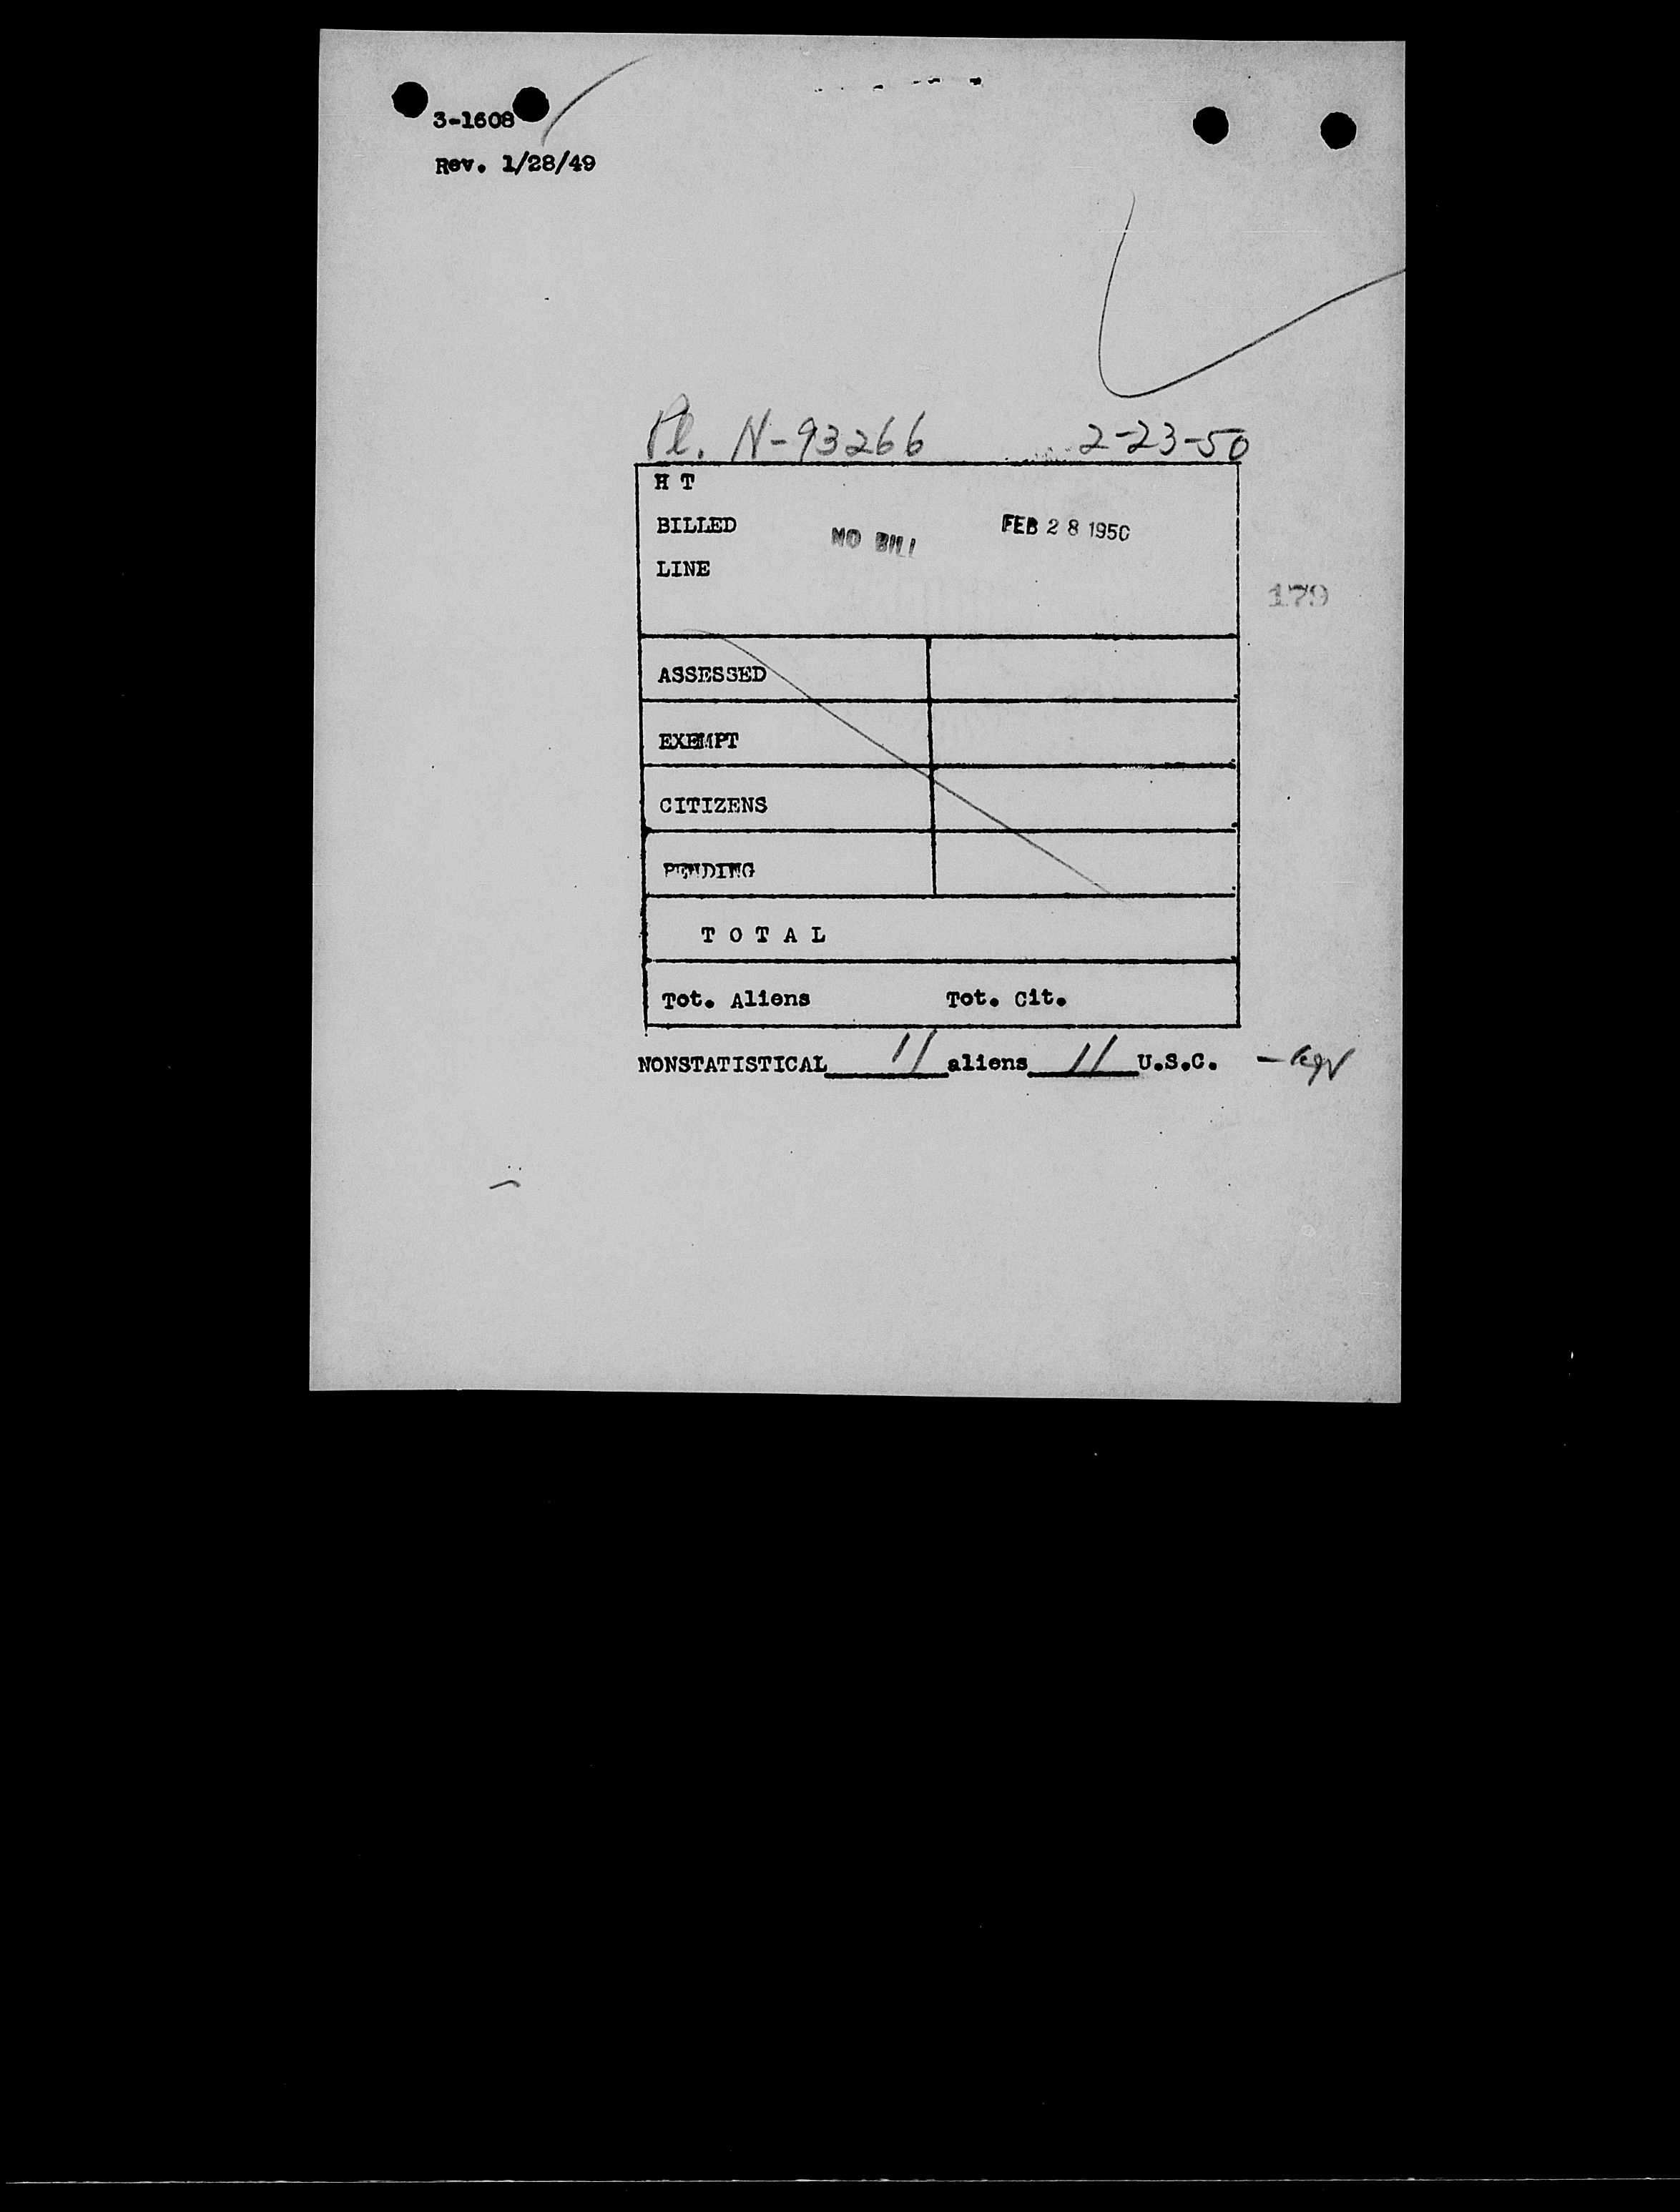 3-1608
Rev. 1/28/49
Pl. N-93266 2-23-50
H T
BILLED NO BILL FEB 28 1950
LINE
179
ASSESSED
EXEMPT
CITIZENS
PENDING
T O T A L
Tot. Aliens Tot. Cit.
NONSTATISTICAL 11 aliens 11 U.S.C.